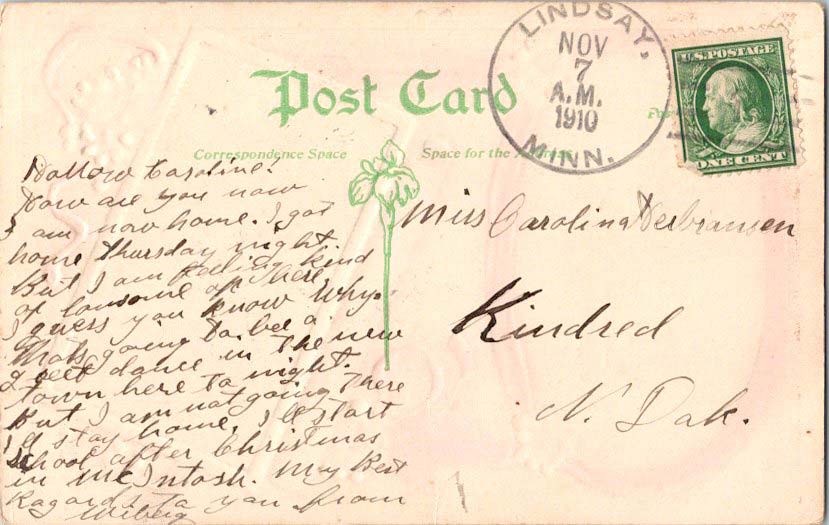 LINDSAY,
NOV
7
A.M.
1910
MINN.
U.S. POSTAGE
ONE CENT
Post Card
Correspondence Space
Space for the Address
Hallow Caroline!
How are you now
I am now home. I got
home Thursday night.
But I am feeling kind
of lonsome of There,
I guess you know Why.
Thats going to be a
great dance in The new
town here to night.
But I am not going There
I'd stay home. I'll Start
School after Christmas
in McIntosh. My Best
Ragards To you from
Miss Carolina
Kindred
N. Dak.